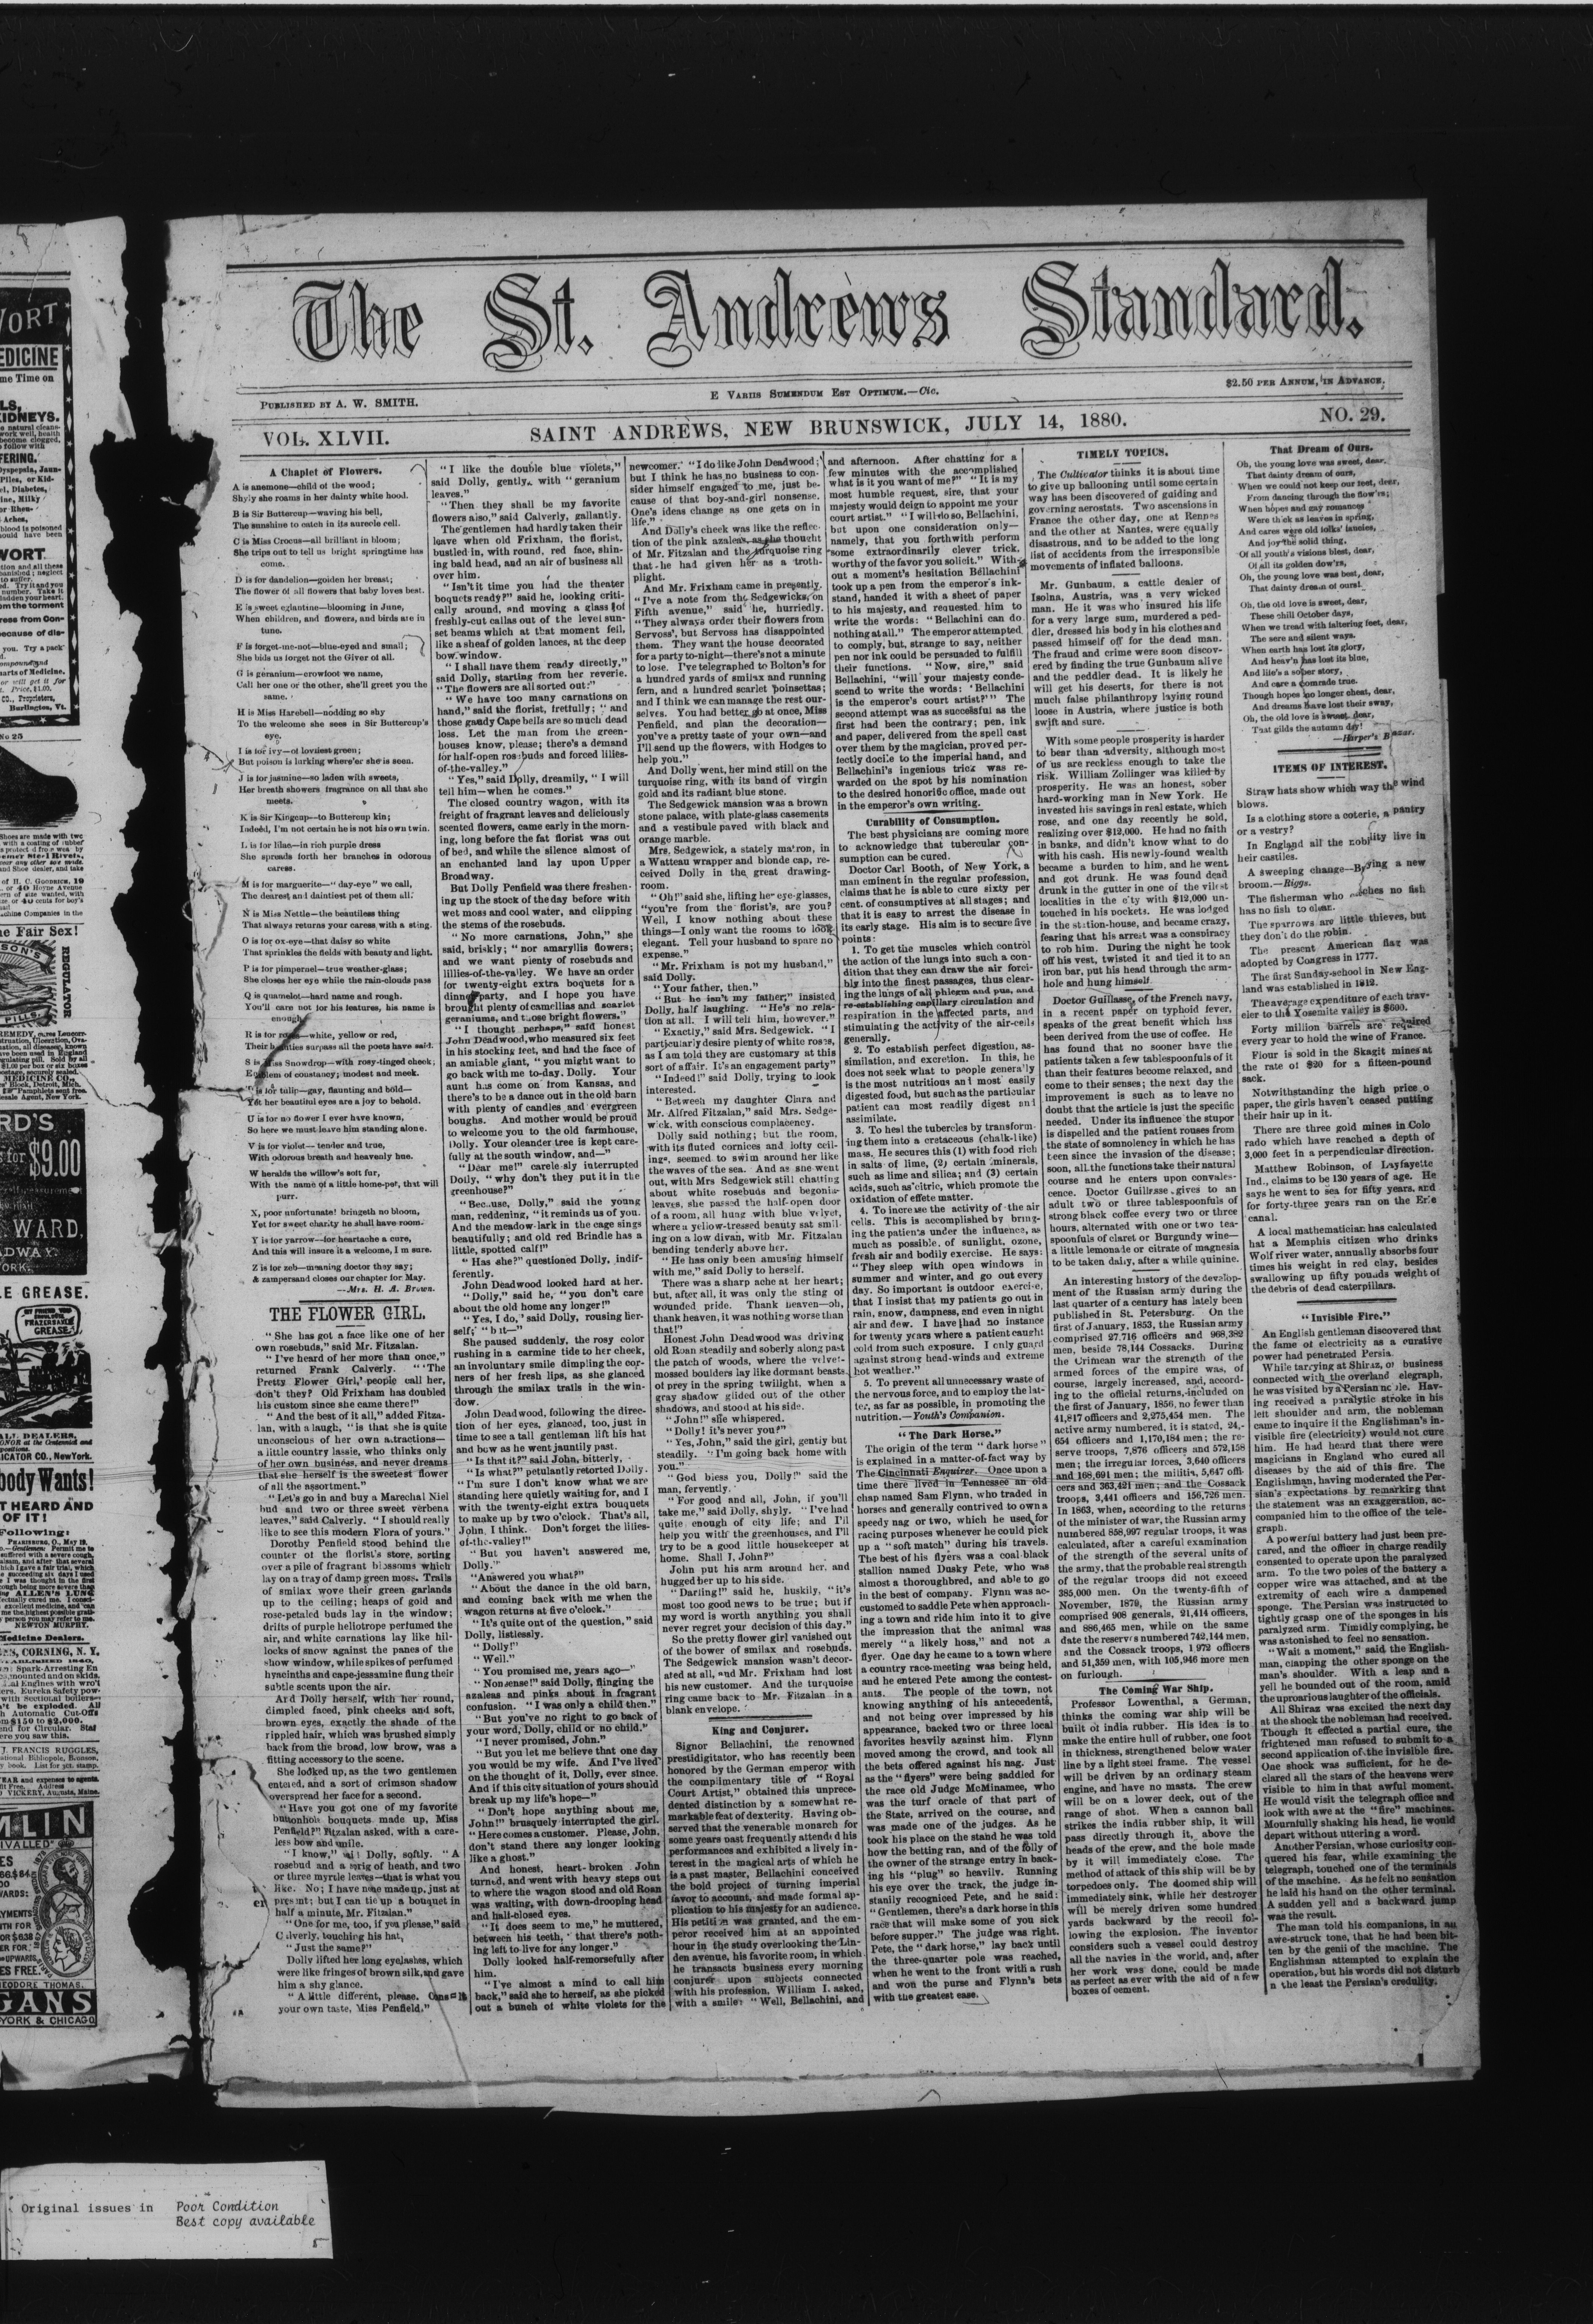 The St. Andrews Standard.
PUBLISHED BY A. W. SMITH.
E VARIIS SUMENDUM EST OPTIMUM.—Cic.
$2.50 PER ANNUM, IN ADVANCE.
VOL. XLVII.
SAINT ANDREWS, NEW BRUNSWICK, JULY 14, 1880.
NO. 29.
A Chaplet of Flowers.
A is anemone—child of the wood;
Shyly she roams in her dainty white hood.
B is Sir Buttercup—waving his bell,
The sunshine to catch in its aureole cell.
C is Miss Crocus—all brilliant in bloom;
She trips out to tell us bright springtime has
come.
D is for dandelion—golden her breast;
The flower of all flowers that baby loves best.
E is sweet eglantine—blooming in June,
When children, and flowers, and birds are in
tune.
F is forget-me-not—blue-eyed and small;
She bids us forget not the Giver of all.
G is geranium—crowfoot we name,
Call her one or the other, she'll greet you the
same.
H is Miss Harebell—nodding so shy
To the welcome she sees in Sir Buttercup's
eye.
I is for ivy—of loviest green;
But poison is lurking where'er she is seen.
J is for jasmine—so laden with sweets,
Her breath showers fragrance on all that she
meets.
K is Sir Kingcup—to Buttercup kin;
Indeed, I'm not certain he is not his own twin.
L is for lilac—in rich purple dress
She spreads forth her branches in odorous
caress.
M is for marguerite—"day-eye" we call,
The dearest and daintiest pet of them all.
N is Miss Nettle—the beautiless thing
That always returns your caress with a sting.
O is for ox-eye—that daisy so white
That sprinkles the fields with beauty and light.
P is for pimpernel—true weather-glass;
She closes her eye while the rain-clouds pass
Q is quamelot—hard name and rough.
You'll care not for his features, his name is
enough
R is for —white, yellow or red,
Their surpass all the poets have said.
S is Miss Snowdrop—with rosy-tinged cheek;
Emblem of constancy; modest and meek.
T is for tulip—gay, flaunting and bold—
Yet her beautiful eyes are a joy to behold.
U is for no flower I ever have known,
So here we must leave him standing alone.
V is for violet—tender and true,
With odorous breath and heavenly hue.
W heralds the willow's soft fur,
With the name of a little home-pet, that will
purr.
X, poor unfortunate! bringeth no bloom,
Yet for sweet charity he shall have room.
Y is for yarrow—for heartache a cure,
And this will insure it a welcome, I m sure.
Z is for zeb—meaning doctor they say;
& zampersand closes our chapter for May.
—Mrs. H. A. Brown.
THE FLOWER GIRL.
"She has got a face like one of her
own rosebuds," said Mr. Fitzalan.
"I've heard of her more than once,"
returned Frank Calverly. "'The
Pretty Flower Girl,' people call her,
don't they? Old Frixham has doubled
his custom since she came there!"
"And the best of it all," added Fitza-
lan, with a laugh, "is that she is quite
unconscious of her own attractions—
a little country lassie, who thinks only
of her own business, and never dreams
that she herself is the sweetest flower
of all the assortment."
"Let's go in and buy a Marechal Niel
bud and two or three sweet verbena
leaves," said Calverly. "I should really
like to see this modern Flora of yours."
Dorothy Penfield stood behind the
counter of the florist's store, sorting
over a pile of fragrant blossoms which
lay on a tray of damp green moss. Trails
of smilax wove their green garlands
up to the ceiling; heaps of gold and
rose-petaled buds lay in the window;
drifts of purple heliotrope perfumed the
air, and white carnations lay like hil-
locks of snow against the panes of the
show window, while spikes of perfumed
hyacinths and cape-jessamine flung their
subtle scents upon the air.
And Dolly herself, with her round,
dimpled faced, pink cheeks and soft,
brown eyes, exactly the shade of the
rippled hair, which was brushed simply
back from the broad, low brow, was a
fitting accessory to the scene.
She looked up, as the two gentlemen
entered, and a sort of crimson shadow
overspread her face for a second.
"Have you got one of my favorite
buttonhole bouquets made up, Miss
Penfield?" Fitzalan asked, with a care-
less bow and smile.
"I know," said Dolly, softly. "A
rosebud and a sprig of heath, and two
or three myrtle leaves—that is what you
like. No; I have none made up, just at
present; but I can tie up a bouquet in
half a minute, Mr. Fitzalan."
"One for me, too, if you please," said
Calverly, touching his hat,
"Just the same?"
Dolly lifted her long eyelashes, which
were like fringes of brown silk, and gave
him a shy glance.
"A little different, please. Consult
your own taste, Miss Penfield."
"I like the double blue violets,"
said Dolly, gently, with "geranium
leaves."
"Then they shall be my favorite
flowers also," said Calverly, gallantly.
The gentlemen had hardly taken their
leave when old Frixham, the florist,
bustled in, with round, red face, shin-
ing bald head, and an air of business all
over him.
"Isn't it time you had the theater
boquets ready?" said he, looking criti-
cally around, and moving a glass of
freshly-cut callas out of the level sun-
set beams which at that moment fell,
like a sheaf of golden lances, at the deep
bow window.
"I shall have them ready directly,"
said Dolly, starting from her reverie.
"The flowers are all sorted out."
"We have too many carnations on
hand," said the florist, fretfully; "and
those gaudy Cape bells are so much dead
loss. Let the man from the green-
houses know, please; there's a demand
for half-open rosebuds and forced lilies-
of-the-valley."
"Yes," said Dolly, dreamily, "I will
tell him—when he comes."
The closed country wagon, with its
freight of fragrant leaves and deliciously
scented flowers, came early in the morn-
ing, long before the fat florist was out
of bed, and while the silence almost of
an enchanted land lay upon Upper
Broadway.
But Dolly Penfield was there freshen-
ing up the stock of the day before with
wet moss and cool water, and clipping
the stems of the rosebuds.
"No more carnations, John," she
said, briskly; "nor amaryllis flowers;
and we want plenty of rosebuds and
lillies-of-the-valley. We have an order
for twenty-eight extra boquets for a
dinner party, and I hope you have
brought plenty of camellias and scarlet
geraniums, and those bright flowers."
"I thought perhaps," said honest
John Deadwood, who measured six feet
in his stocking feet, and had the face of
an amiable giant, "you might want to
go back with me to-day. Dolly. Your
aunt has come on from Kansas, and
there's to be a dance out in the old barn
with plenty of candles and evergreen
boughs. And mother would be proud
to welcome you to the old farmhouse,
Dolly. Your oleander tree is kept care-
fully at the south window, and—"
"Dear me!" carelessly interrupted
Dolly, "why don't they put it in the
greenhouse?"
"Because, Dolly," said the young
man, reddening, "it reminds us of you.
And the meadow-lark in the cage sings
beautifully; and old red Brindle has a
little, spotted calf!"
"Has she?" questioned Dolly, indif-
ferently.
John Deadwood looked hard at her.
"Dolly," said he, "you don't care
about the old home any longer!"
"Yes, I do," said Dolly, rousing her-
self; "but—"
She paused suddenly, the rosy color
rushing in a carmine tide to her cheek,
an involuntary smile dimpling the cor-
ners of her fresh lips, as she glanced
through the smilax trails in the win-
dow.
John Deadwood, following the direc-
tion of her eyes, glanced, too, just in
time to see a tall gentleman lift his hat
and bow as he went jauntily past.
"Is that it?" said John, bitterly.
"Is what?" petulantly retorted Dolly.
"I'm sure I don't know what we are
standing here quietly waiting for, and I
with the twenty-eight extra bouquets
to make up by two o'clock. That's all,
John, I think. Don't forget the lilies-
of-the-valley!"
"But you haven't answered me,
Dolly."
"Answered you what?"
"About the dance in the old barn,
and coming back with me when the
wagon returns at five o'clock."
"It's quite out of the question," said
Dolly, listlessly.
"Dolly!"
"Well."
"You promised me, years ago—"
"Nonsense!" said Dolly, flinging the
azaleas and pinks about in fragrant
confusion. "I was only a child then."
"But you've no right to go back of
your word, Dolly, child or no child."
"I never promised, John."
"But you let me believe that one day
you would be my wife. And I've lived
on the thought of it, Dolly, ever since.
And if this city situation of yours should
break up my life's hope—"
"Don't hope anything about me,
John!" brusquely interrupted the girl.
"Here comes a customer. Please, John,
don't stand there any longer looking
like a ghost."
And honest, heart-broken John
turned, and went with heavy steps out
to where the wagon stood and old Roan
was waiting, with down-drooping head
and half-closed eyes.
"It does seem to me," he muttered,
between his teeth, "that there's noth-
ing left to live for any longer."
Dolly looked half-remorsefully after
him.
"I've almost a mind to call him
back," said she to herself, as she picked
out a bunch of white violets for the
newcomer. "I do like John Deadwood;
but I think he has no business to con-
sider himself engaged to me, just be-
cause of that boy-and-girl nonsense.
One's ideas change as one gets on in
life."
And Dolly's cheek was like the reflec-
tion of the pink azaleas, as she thought
of Mr. Fitzalan and the turquoise ring
that he had given her as a troth-
plight.
And Mr. Frixham came in presently.
"I've a note from the Sedgewicks, on
Fifth avenue," said he, hurriedly.
"They always order their flowers from
Servoss', but Servoss has disappointed
them. They want the house decorated
for a party to-night—there's not a minute
to lose. I've telegraphed to Bolton's for
a hundred yards of smilax and running
fern, and a hundred scarlet poinsettas;
and I think we can manage the rest our-
selves. You had better go at once, Miss
Penfield, and plan the decoration—
you've a pretty taste of your own—and
I'll send up the flowers, with Hodges to
help you."
And Dolly went, her mind still on the
turquoise ring, with its band of virgin
gold and its radiant blue stone.
The Sedgewick mansion was a brown
stone palace, with plate-glass casements
and a vestibule paved with black and
orange marble.
Mrs. Sedgewick, a stately matron, in
a Watteau wrapper and blonde cap, re-
ceived Dolly in the great drawing-
room.
"Oh!" said she, lifting her eye-glasses,
"you're from the florist's, are you?
Well, I know nothing about these
things—I only want the rooms to look
elegant. Tell your husband to spare no
expense."
"Mr. Frixham is not my husband,"
said Dolly.
"Your father, then."
"But he isn't my father," insisted
Dolly, half laughing. "He's no rela-
tion at all. I will tell him, however."
"Exactly," said Mrs. Sedgewick. "I
particularly desire plenty of white roses,
as I am told they are customary at this
sort of affair. It's an engagement party"
"Indeed!" said Dolly, trying to look
interested.
"Between my daughter Clara and
Mr. Alfred Fitzalan," said Mrs. Sedge-
wick, with conscious complacency.
Dolly said nothing; but the room,
with its fluted cornices and lofty ceil-
ings, seemed to swim around her like
the waves of the sea. And as she went
out, with Mrs Sedgewick still chatting
about white rosebuds and begonia-
leaves, she passed the half-open door
of a room, all hung with blue velvet,
where a yellow-tressed beauty sat smil-
ing on a low divan, with Mr. Fitzalan
bending tenderly above her.
"He has only been amusing himself
with me," said Dolly to herself.
There was a sharp ache at her heart;
but, after all, it was only the sting of
wounded pride. Thank heaven—oh,
thank heaven, it was nothing worse than
that!"
Honest John Deadwood was driving
old Roan steadily and soberly along past
the patch of woods, where the velvet-
mossed boulders lay like dormant beasts
of prey in the spring twilight, when a
gray shadow glided out of the other
shadows, and stood at his side.
"John!" she whispered.
"Dolly! it's never you?"
"Yes, John," said the girl, gently but
steadily. "I'm going back home with
you."
"God bless you, Dolly!" said the
man, fervently.
"For good and all, John, if you'll
take me," said Dolly, shyly. "I've had
quite enough of city life; and I'll
help you with the greenhouses, and I'll
try to be a good little housekeeper at
home. Shall I, John?"
John put his arm around her, and
hugged her up to his side.
"Darling!" said he, huskily, "it's
most too good news to be true; but if
my word is worth anything you shall
never regret your decision of this day."
So the pretty flower girl vanished out
of the bower of smilax and rosebuds.
The Sedgewick mansion wasn't decor-
ated at all, and Mr. Frixham had lost
his new customer. And the turquoise
ring came back to Mr. Fitzalan in a
blank envelope.
King and Conjurer.
Signor Bellachini, the renowned
prestidigitator, who has recently been
honored by the German emperor with
the complimentary title of "Royal
Court Artist," obtained this unprece-
dented distinction by a somewhat re-
markable feat of dexterity. Having ob-
served that the venerable monarch for
some years past frequently attended his
performances and exhibited a lively in-
terest in the magical arts of which he
is a past master, Bellachini conceived
the bold project of turning imperial
favor to account, and made formal ap-
plication to his majesty for an audience.
His petition was granted, and the em-
peror received him at an appointed
hour in the study overlooking the Lin-
den avenue, his favorite room, in which
he transacts business every morning
conjurer upon subjects connected
with his profession, William I. asked,
with a smile: "Well, Bellachini, and
and afternoon. After chatting for a
few minutes with the accomplished
what is it you want of me?" "It is my
most humble request, sire, that your
majesty would deign to appoint me your
court artist." "I will do so, Bellachini,
but upon one consideration only—
namely, that you forthwith perform
some extraordinarily clever trick,
worthy of the favor you solicit." With-
out a moment's hesitation Bellachini
took up a pen from the emperor's ink-
stand, handed it with a sheet of paper
to his majesty, and requested him to
write the words: "Bellachini can do
nothing at all." The emperor attempted
to comply, but, strange to say, neither
pen nor ink could be persuaded to fulfill
their functions. "Now, sire," said
Bellachini, "will your majesty conde-
scend to write the words: 'Bellachini
is the emperor's court artist?'" The
second attempt was as successful as the
first had been the contrary; pen, ink
and paper, delivered from the spell cast
over them by the magician, proved per-
fectly docile to the imperial hand, and
Bellachini's ingenious trick was re-
warded on the spot by his nomination
to the desired honorific office, made out
in the emperor's own writing.
Curability of Consumption.
The best physicians are coming more
to acknowledge that tubercular con-
sumption can be cured.
Doctor Carl Booth, of New York, a
man eminent in the regular profession,
claims that he is able to cure sixty per
cent. of consumptives at all stages; and
that it is easy to arrest the disease in
its early stage. His aim is to secure five
points:
1. To get the muscles which control
the action of the lungs into such a con-
dition that they can draw the air forci-
bly into the finest passages, thus clear-
ing the lungs of all phlegm and pus, and
re-establishing capillary circulation and
respiration in the affected parts, and
stimulating the activity of the air-cells
generally.
2. To establish perfect digestion, as-
similation, and excretion. In this, he
does not seek what to people generally
is the most nutritious and most easily
digested food, but such as the particular
patient can most readily digest and
assimilate.
3. To heal the tubercles by transform-
ing them into a cretaceous (chalk-like)
mass. He secures this (1) with food rich
in salts of lime, (2) certain minerals,
such as lime and silica; and (3) certain
acids, such as citric, which promote the
oxidation of effete matter.
4. To increase the activity of the air
cells. This is accomplished by bring-
ing the patients under the influence, as
much as possible, of sunlight, ozone,
fresh air and bodily exercise. He says:
"They sleep with open windows in
summer and winter, and go out every
day. So important is outdoor exercise,
that I insist that my patients go out in
rain, snow, dampness, and even in night
air and dew. I have had no instance
for twenty years where a patient caught
cold from such exposure. I only guard
against strong head-winds and extreme
hot weather."
5. To prevent all unnecessary waste of
the nervous force, and to employ the lat-
ter, as far as possible, in promoting the
nutrition.—Youth's Companion.
"The Dark Horse."
The origin of the term "dark horse"
is explained in a matter-of-fact way by
The Cincinnati Enquirer. Once upon a
time there lived in Tennessee an old
chap named Sam Flynn, who traded in
horses and generally contrived to own a
speedy nag or two, which he used for
racing purposes whenever he could pick
up a "soft match" during his travels.
The best of his flyers was a coal black
stallion named Dusky Pete, who was
almost a thoroughbred, and able to go
in the best of company. Flynn was ac-
customed to saddle Pete when approach-
ing a town and ride him into it to give
the impression that the animal was
merely "a likely hoss," and not a
flyer. One day he came to a town where
a country race-meeting was being held,
and he entered Pete among the contest-
ants. The people of the town, not
knowing anything of his antecedents,
and not being over impressed by his
appearance, backed two or three local
favorites heavily against him. Flynn
moved among the crowd, and took all
the bets offered against his nag. Just
as the "flyers" were being saddled for
the race old Judge McMinamee, who
was the turf oracle of that part of
the State, arrived on the course, and
was made one of the judges. As he
took his place on the stand he was told
how the betting ran, and of the folly of
the owner of the strange entry in back-
ing his "plug" so heavily. Running
his eye over the track, the judge in-
stantly recognized Pete, and he said:
"Gentlemen, there's a dark horse in this
race that will make some of you sick
before supper." The judge was right.
Pete, the "dark horse," lay back until
the three-quarter pole was reached,
when he went to the front with a rush
and won the purse and Flynn's bets
with the greatest ease.
TIMELY TOPICS.
The Cultivator thinks it is about time
to give up ballooning until some certain
way has been discovered of guiding and
governing aerostats. Two ascensions in
France the other day, one at Rennes
and the other at Nantes, were equally
disastrous, and to be added to the long
list of accidents from the irresponsible
movements of inflated balloons.
Mr. Gunbaum, a cattle dealer of
Isolna, Austria, was a very wicked
man. He it was who insured his life
for a very large sum, murdered a ped-
dler, dressed his body in his clothes and
passed himself off for the dead man.
The fraud and crime were soon discov-
ered by finding the true Gunbaum alive
and the peddler dead. It is likely he
will get his deserts, for there is not
much false philanthropy laying round
loose in Austria, where justice is both
swift and sure.
With some people prosperity is harder
to bear than adversity, although most
of us are reckless enough to take the
risk. William Zollinger was killed by
prosperity. He was an honest, sober
hard-working man in New York. He
invested his savings in real estate, which
rose, and one day recently he sold,
realizing over $12,000. He had no faith
in banks, and didn't know what to do
with his cash. His newly-found wealth
became a burden to him, and he went
and got drunk. He was found dead
drunk in the gutter in one of the vilest
localities in the city with $12,000 un-
touched in his pockets. He was lodged
in the station-house, and became crazy,
fearing that his arrest was a conspiracy
to rob him. During the night he took
off his vest, twisted it and tied it to an
iron bar, put his head through the arm-
hole and hung himself.
Doctor Guillasse, of the French navy,
in a recent paper on typhoid fever,
speaks of the great benefit which has
been derived from the use of coffee. He
has found that no sooner have the
patients taken a few tablespoonfuls of it
than their features become relaxed, and
come to their senses; the next day the
improvement is such as to leave no
doubt that the article is just the specific
needed. Under its influence the stupor
is dispelled and the patient rouses from
the state of somnolency in which he has
been since the invasion of the disease;
soon, all the functions take their natural
course and he enters upon convales-
cence. Doctor Guillasse gives to an
adult two or three tablespoonfuls of
strong black coffee every two or three
hours, alternated with one or two tea-
spoonfuls of claret or Burgundy wine—
a little lemonade or citrate of magnesia
to be taken daily, after a while quinine.
An interesting history of the develop-
ment of the Russian army during the
last quarter of a century has lately been
published in St. Petersburg. On the
first of January, 1853, the Russian army
comprised 27,716 officers and 968,382
men, beside 78,144 Cossacks. During
the Crimean war the strength of the
armed forces of the empire was, of
course, largely increased, and, accord-
ing to the official returns, included on
the first of January, 1856, no fewer than
41,817 officers and 2,275,454 men. The
active army numbered, it is stated, 24,-
654 officers and 1,170,184 men; the re-
serve troops, 7,876 officers and 572,158
men; the irregular forces, 3,640 officers
and 168,691 men; the militia, 5,647 offi-
cers and 363,421 men; and the Cossack
troops, 3,441 officers and 156,726 men.
In 1863, when, according to the returns
of the minister of war, the Russian army
numbered 858,997 regular troops, it was
calculated, after a careful examination
of the strength of the several units of
the army, that the probable real strength
of the regular troops did not exceed
385,000 men. On the twenty-fifth of
November, 1879, the Russian army
comprised 908 generals, 21,414 officers,
and 886,465 men, while on the same
date the reserves numbered 742,144 men,
and the Cossack troops, 1,972 officers
and 51,359 men, with 105,946 more men
on furlough.
The Coming War Ship.
Professor Lowenthal, a German,
thinks the coming war ship will be
built of india rubber. His idea is to
make the entire hull of rubber, one foot
in thickness, strengthened below water
line by a light steel frame. The vessel
will be driven by an ordinary steam
engine, and have no masts. The crew
will be on a lower deck, out of the
range of shot. When a cannon ball
strikes the india rubber ship, it will
pass directly through it, above the
heads of the crew, and the hole made
by it will immediately close. The
method of attack of this ship will be by
torpedoes only. The doomed ship will
immediately sink, while her destroyer
will be merely driven some hundred
yards backward by the recoil fol-
lowing the explosion. The inventor
considers such a vessel could destroy
all the navies in the world, and, after
her work was done, could be made
as perfect as ever with the aid of a few
boxes of cement.
That Dream of Ours.
Oh, the young love was sweet, dear,
That dainty dream of ours,
When we could not keep our feet, dear,
From dancing through the flow'rs;
When hopes and gay romances
Were thick as leaves in spring,
And cares were old folks' fancies,
And joy the solid thing,
Of all youth's visions blest, dear,
Of all its golden dow'rs,
Oh, the young love was best, dear,
That dainty dream of ours!
Oh, the old love is sweet, dear,
These chill October days,
When we tread with faltering feet, dear,
The sere and silent ways.
When earth has lost its glory,
And heav'n has lost its blue,
And life's a sober story,
And care a comrade true.
Though hopes no longer cheat, dear,
And dreams have lost their sway,
Oh, the old love is sweet, dear,
That gilds the autumn day!
—Harper's Bazar.
ITEMS OF INTEREST.
Straw hats show which way the wind
blows.
Is a clothing store a coterie, a pantry
or a vestry?
In England all the nobility live in
their castles.
A sweeping change—Buying a new
broom.—Biggs.
The fisherman who catches no fish
has no fish to clean.
The sparrows are little thieves, but
they don't do the robin.
The present American flag was
adopted by Congress in 1777.
The first Sunday-school in New Eng-
land was established in 1812.
The average expenditure of each trav-
eler to the Yosemite valley is $600.
Forty million barrels are required
every year to hold the wine of France.
Flour is sold in the Skagit mines at
the rate of $20 for a fifteen-pound
sack.
Notwithstanding the high price o
paper, the girls haven't ceased putting
their hair up in it.
There are three gold mines in Colo
rado which have reached a depth of
3,000 feet in a perpendicular direction.
Matthew Robinson, of Layfayette
Ind., claims to be 130 years of age. He
says he went to sea for fifty years, and
for forty-three years ran on the Erie
canal.
A local mathematician has calculated
hat a Memphis citizen who drinks
Wolf river water, annually absorbs four
times his weight in red clay, besides
swallowing up fifty pounds weight of
the debris of dead caterpillars.
"Invisible Fire."
An English gentleman discovered that
the fame of electricity as a curative
power had penetrated Persia.
While tarrying at Shiraz, on business
connected with the overland telegraph,
he was visited by a Persian noble. Hav-
ing received a paralytic stroke in his
left shoulder and arm, the nobleman
came to inquire if the Englishman's in-
visible fire (electricity) would not cure
him. He had heard that there were
magicians in England who cured all
diseases by the aid of this fire. The
Englishman, having moderated the Per-
sian's expectations by remarking that
the statement was an exaggeration, ac-
companied him to the office of the tele-
graph.
A powerful battery had just been pre-
pared, and the officer in charge readily
consented to operate upon the paralyzed
arm. To the two poles of the battery a
copper wire was attached, and at the
extremity of each wire a dampened
sponge. The Persian was instructed to
tightly grasp one of the sponges in his
paralyzed arm. Timidly complying, he
was astonished to feel no sensation.
"Wait a moment," said the English-
man, clapping the other sponge on the
man's shoulder. With a leap and a
yell he bounded out of the room, amid
the uproarious laughter of the officials.
All Shiraz was excited the next day
at the shock the nobleman had received.
Though it effected a partial cure, the
frightened man refused to submit to a
second application of the invisible fire.
One shock was sufficient, for he de-
clared all the stars of the heavens were
visible to him in that awful moment.
He would visit the telegraph office and
look with awe at the "fire" machines.
Mournfully shaking his head, he would
depart without uttering a word.
Another Persian, whose curiosity con-
quered his fear, while examining the
telegraph, touched one of the terminals
of the machine. As he felt no sensation
he laid his hand on the other terminal.
A sudden yell and a backward jump
was the result.
The man told his companions, in an
awe-struck tone, that he had been bit-
ten by the genii of the machine. The
Englishman attempted to explain the
operation, but his words did not disturb
n the least the Persian's credulity.
Original issues in Poor Condition
Best copy available